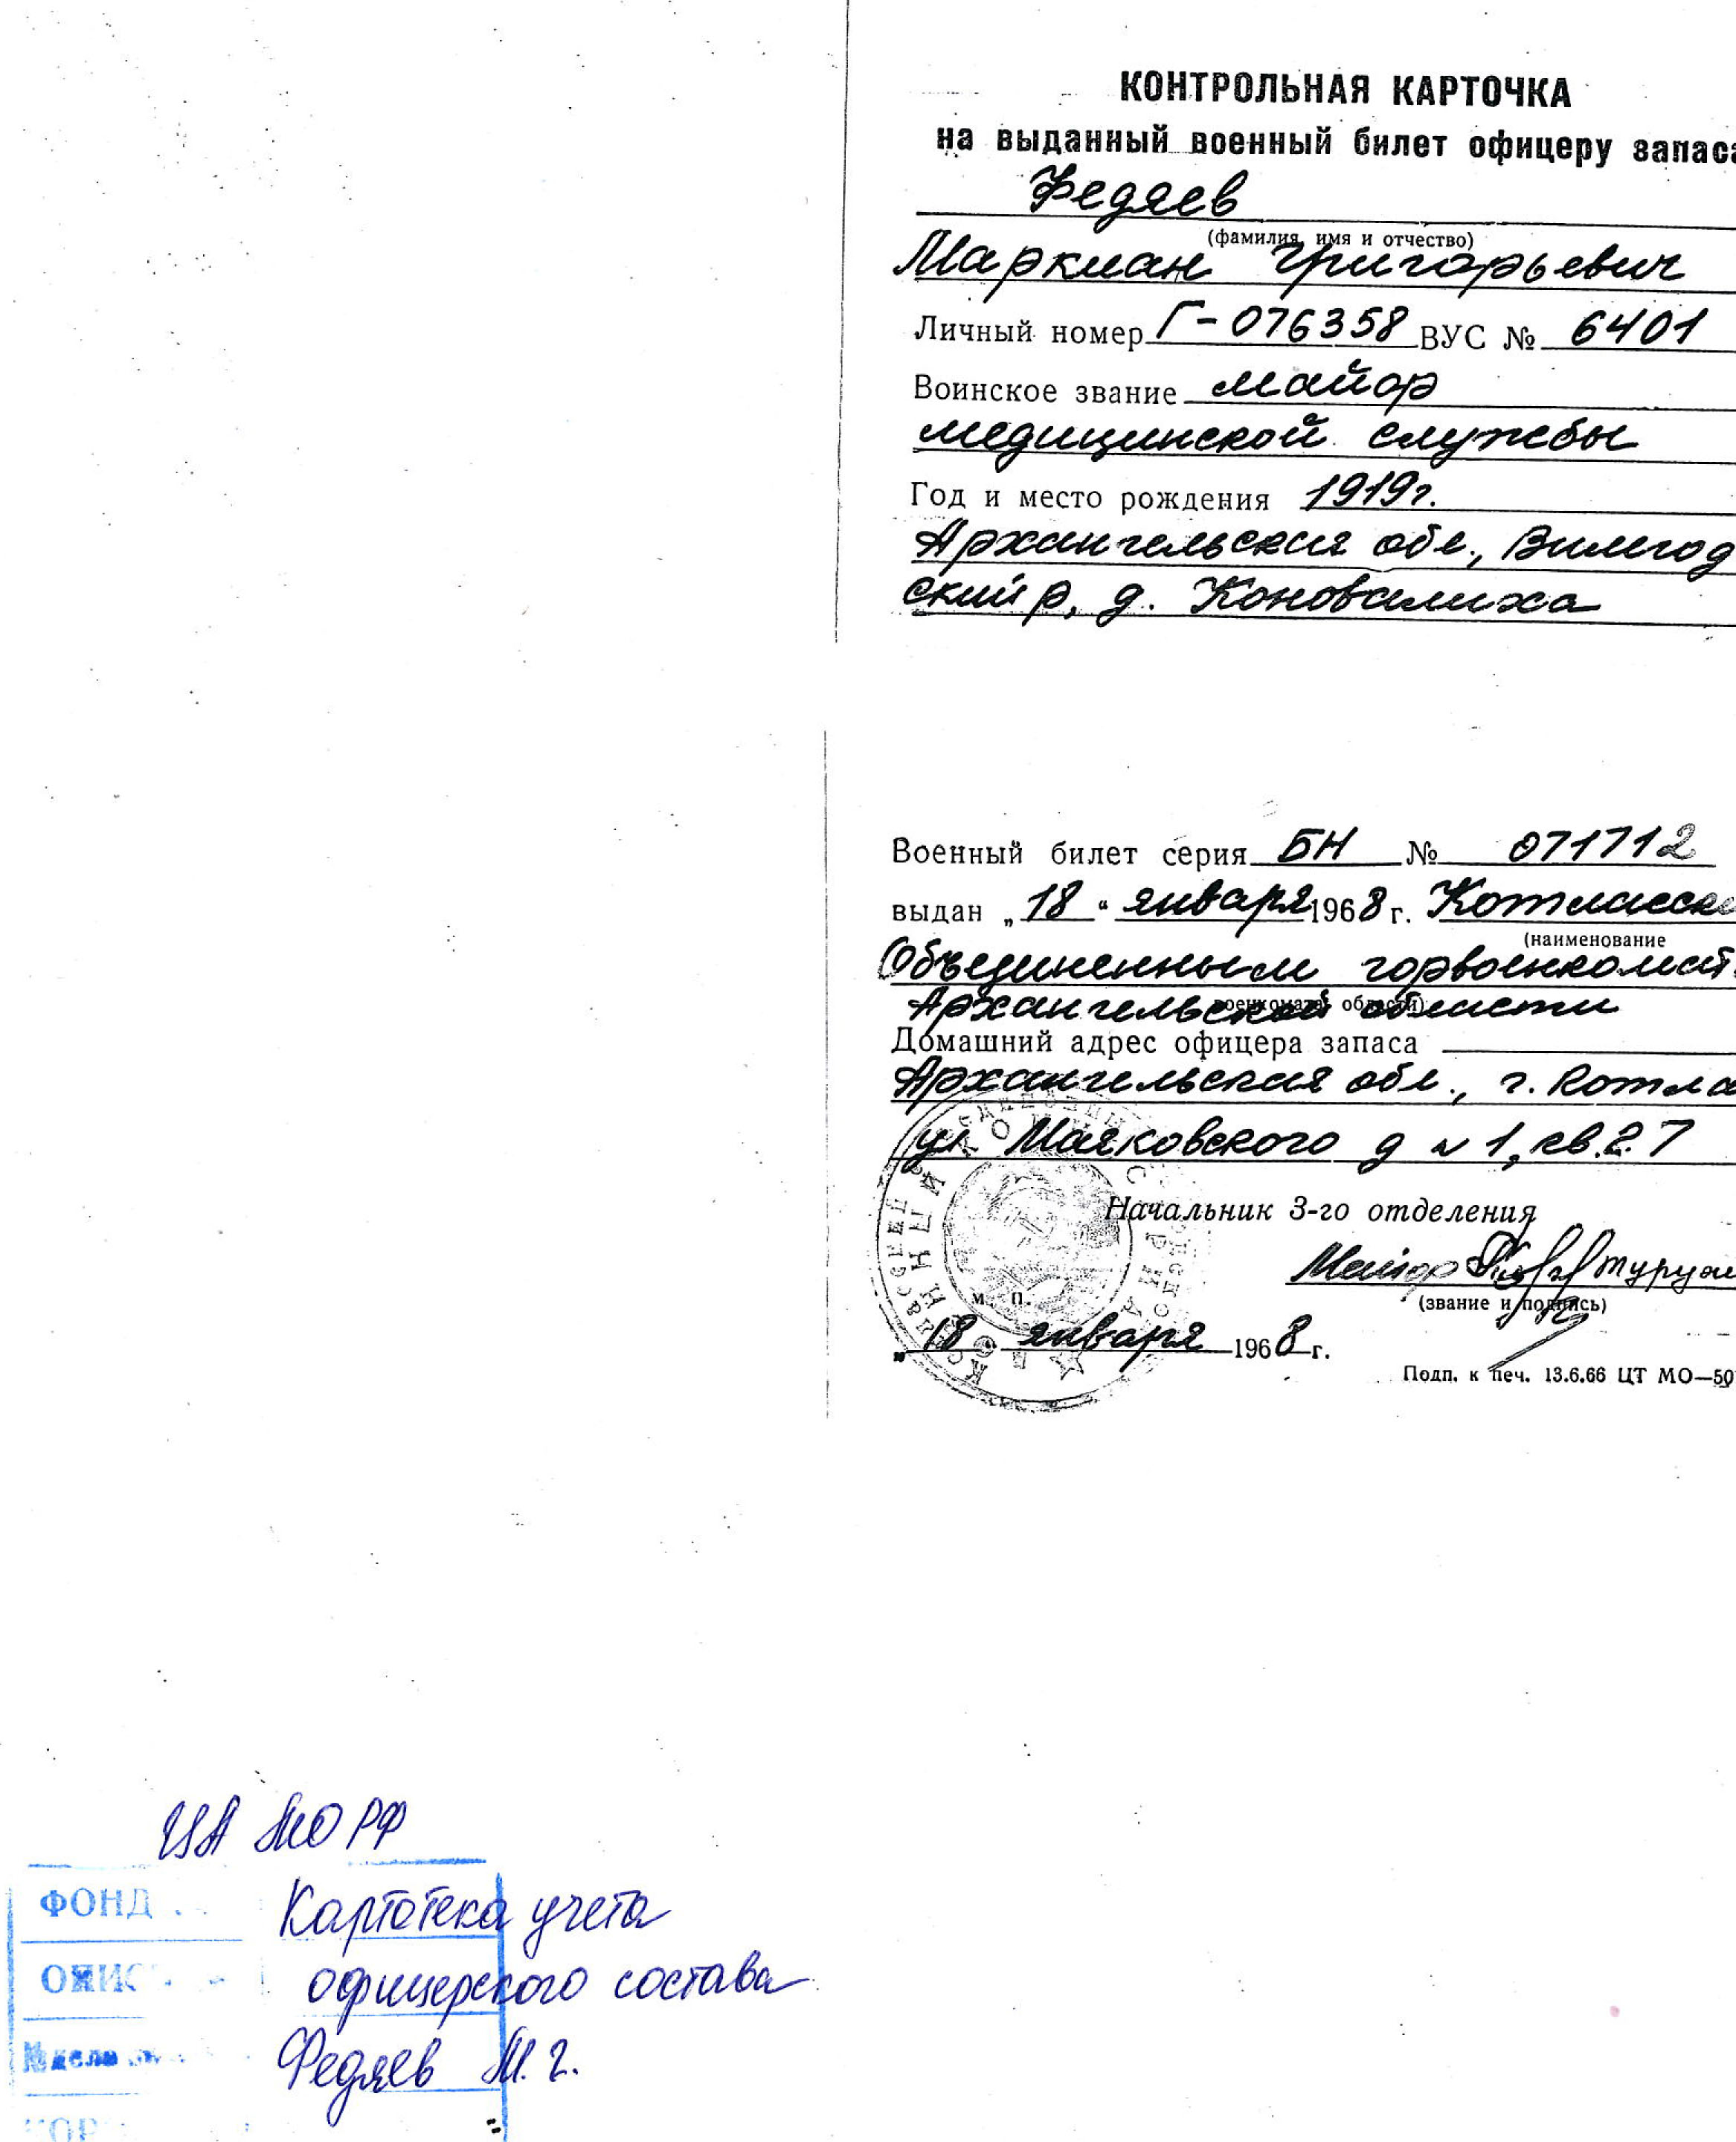 КОНТРОЛЬНАЯ КАРТОЧКА
на выданный военный билет офицеру запаса
Федяев
(фамилия, имя и отчество)
Маркиан Григорьевич
Личный номер Г-076358 ВУС № 6401
Воинское звание майор
медицинской службы
Год и место рождения 1919г.
Архангельская обл., Вилегод
ский р. д. Коновалиха
Военный билет серия БН № 071712
выдан „18“ января 1968 г. Котласск
(наименование
Объединенным горвоенкомат
военкомата, области)
Архангельской области
Домашний адрес офицера запаса
Архангельская обл., г. Котла
ул Маяковского д № 1, кв. 27
Начальник 3-го отделения
Майор
(звание и подпись)
м. п.
„18“ января 1968 г.
Подп. к печ. 13.6.66 ЦТ МО—50
ЦА МО РФ
ФОНД Картотека учета
ОПИС офицерского состава
№ дела Федяев М. Г.
КОР